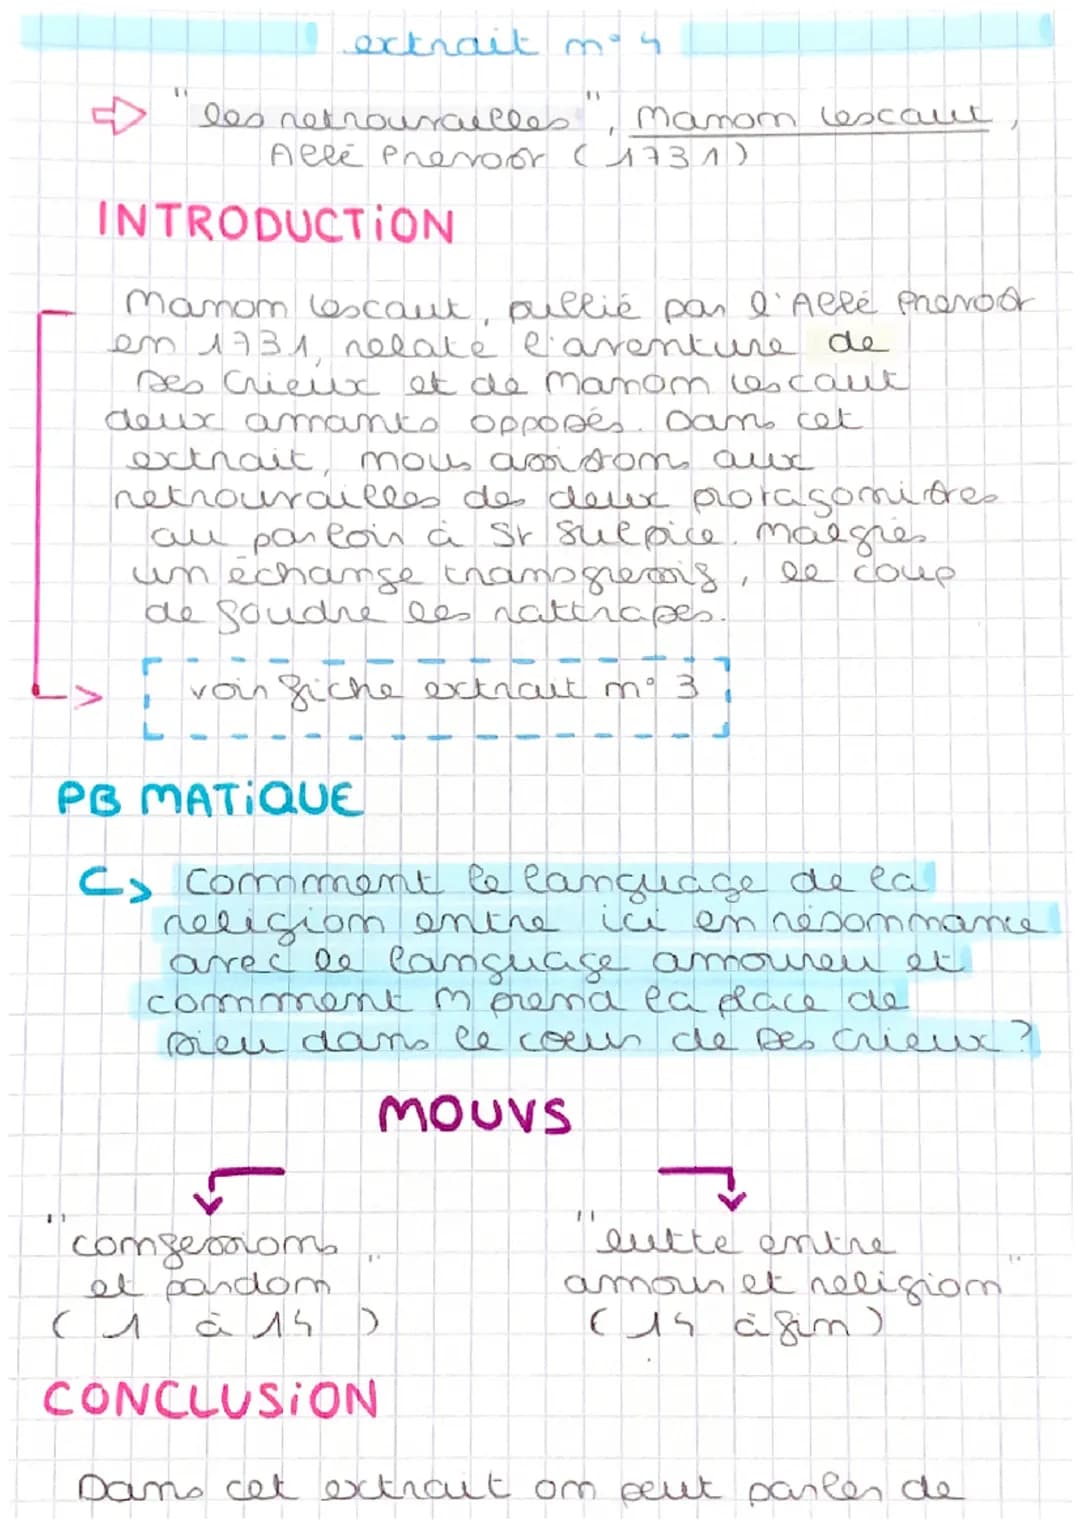 extrait n° 4
"les retrouvailles", Manon Lescaut,
Abbé Prévost (1731)
INTRODUCTION
Manon Lescaut, publié par l'Abbé Prévost
en 1731, relate l'aventure de
Des Grieux et de Manon Lescaut
deux amants opposés. Dans cet
extrait, nous assistons aux
retrouvailles des deux protagonistes
au parloir à St Sulpice. Malgrés
un échange transgressifs, le coup
de foudre les rattrapes.
voir fiche extrait n° 3
PB MATIQUE
Comment le language de la
religion entre ici en résonnance
avec le language amoureu et
comment M prend la place de
Dieu dans le cœur de Des Grieux ?
MOUVS
"confessions
et pardon"
(1 à 14)
"lutte entre
amour et religion"
(14 à fin)
CONCLUSION
Dans cet extrait on peut parler de